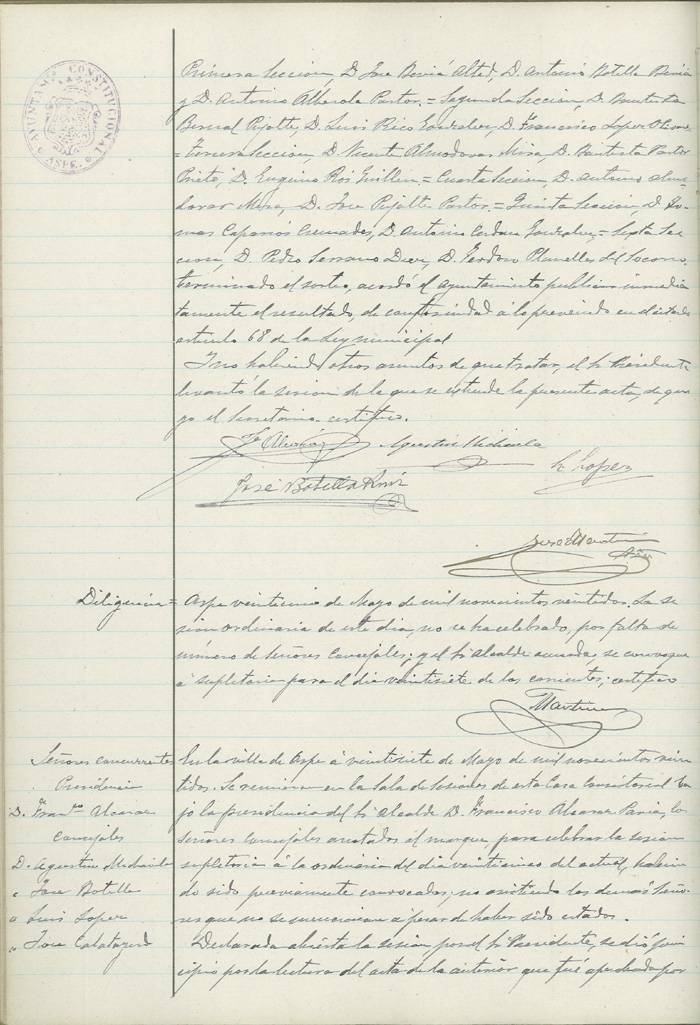 AYUNTAMº CONSTITUCIONAL
ASPE.
Primera Seccion, D. Jose Boviá Alted, D. Antonio Botella Beviá
y D. Antonio Alberola Pastor. = Segunda Seccion, D. Bautista
Bernal Pujalte, D. Luis Rico Gonzalez, D. Francisco Lopez
= Tercera Seccion, D. Vicente Almodovar Mira, D. Bautista Pastor
Prieto, D. Eugenio Ros Guillen = Cuarta Seccion, D. Antonio Almo-
dovar Mira, D. Jose Pujalte Pastor. = Quinta Seccion, D. To-
mas Caparros Cremades, D. Antonio Cerdan Gonzalez, = Sexta Sec-
cion, D. Pedro Serrano Diez, D. Teodoro Planelles del Socorro,
terminado el sorteo, acordó el Ayuntamiento publicar inmedia
tamente el resultado, de conformidad á lo prevenido en el citado
articulo 68 de la Ley municipal
I no habiendo otros asuntos de que tratar, el Sr. Presidente
levantó la sesion de la que se extiende la presente acta, de que
yo el Secretario certifico.
Fº Alcaraz Agustin Michavila
L. Lopez
José Botella
Jose Martinez
Diligencia = Aspe veinticinco de Mayo de mil novecientos veintidos. La se
sion ordinaria de este dia, no se ha celebrado, por falta de
número de Señores Concejales; y el Sr. Alcalde acuerda se convoque
á supletoria para el dia veintisiete de los corrientes; certifico
Martinez
Señores concurrentes
Presidencia
D. Franco Alcaraz
Concejales
D. Agustin Michavila
" Jose Botella
" Luis Lopez
" Jose Calatayud
En la villa de Aspe á veintisiete de Mayo de mil novecientos vein
tidos. Se reunieron en la Sala de Sesiones de esta Casa Consistorial ba
jo la presidencia del Sr. Alcalde D. Francisco Alcaraz Pavia, los
Señores concejales anotados al margen, para celebrar la sesion
supletoria á la ordinaria del dia veinticinco del actual, habien
do sido previamente convocados; no asistiendo los demas Seño-
res que no se mencionan a pesar de haber sido citados.
Declarada abierta la sesion por el Sr. Presidente, se dió prin
cipio por la lectura del acta de la anterior que fué aprobada por